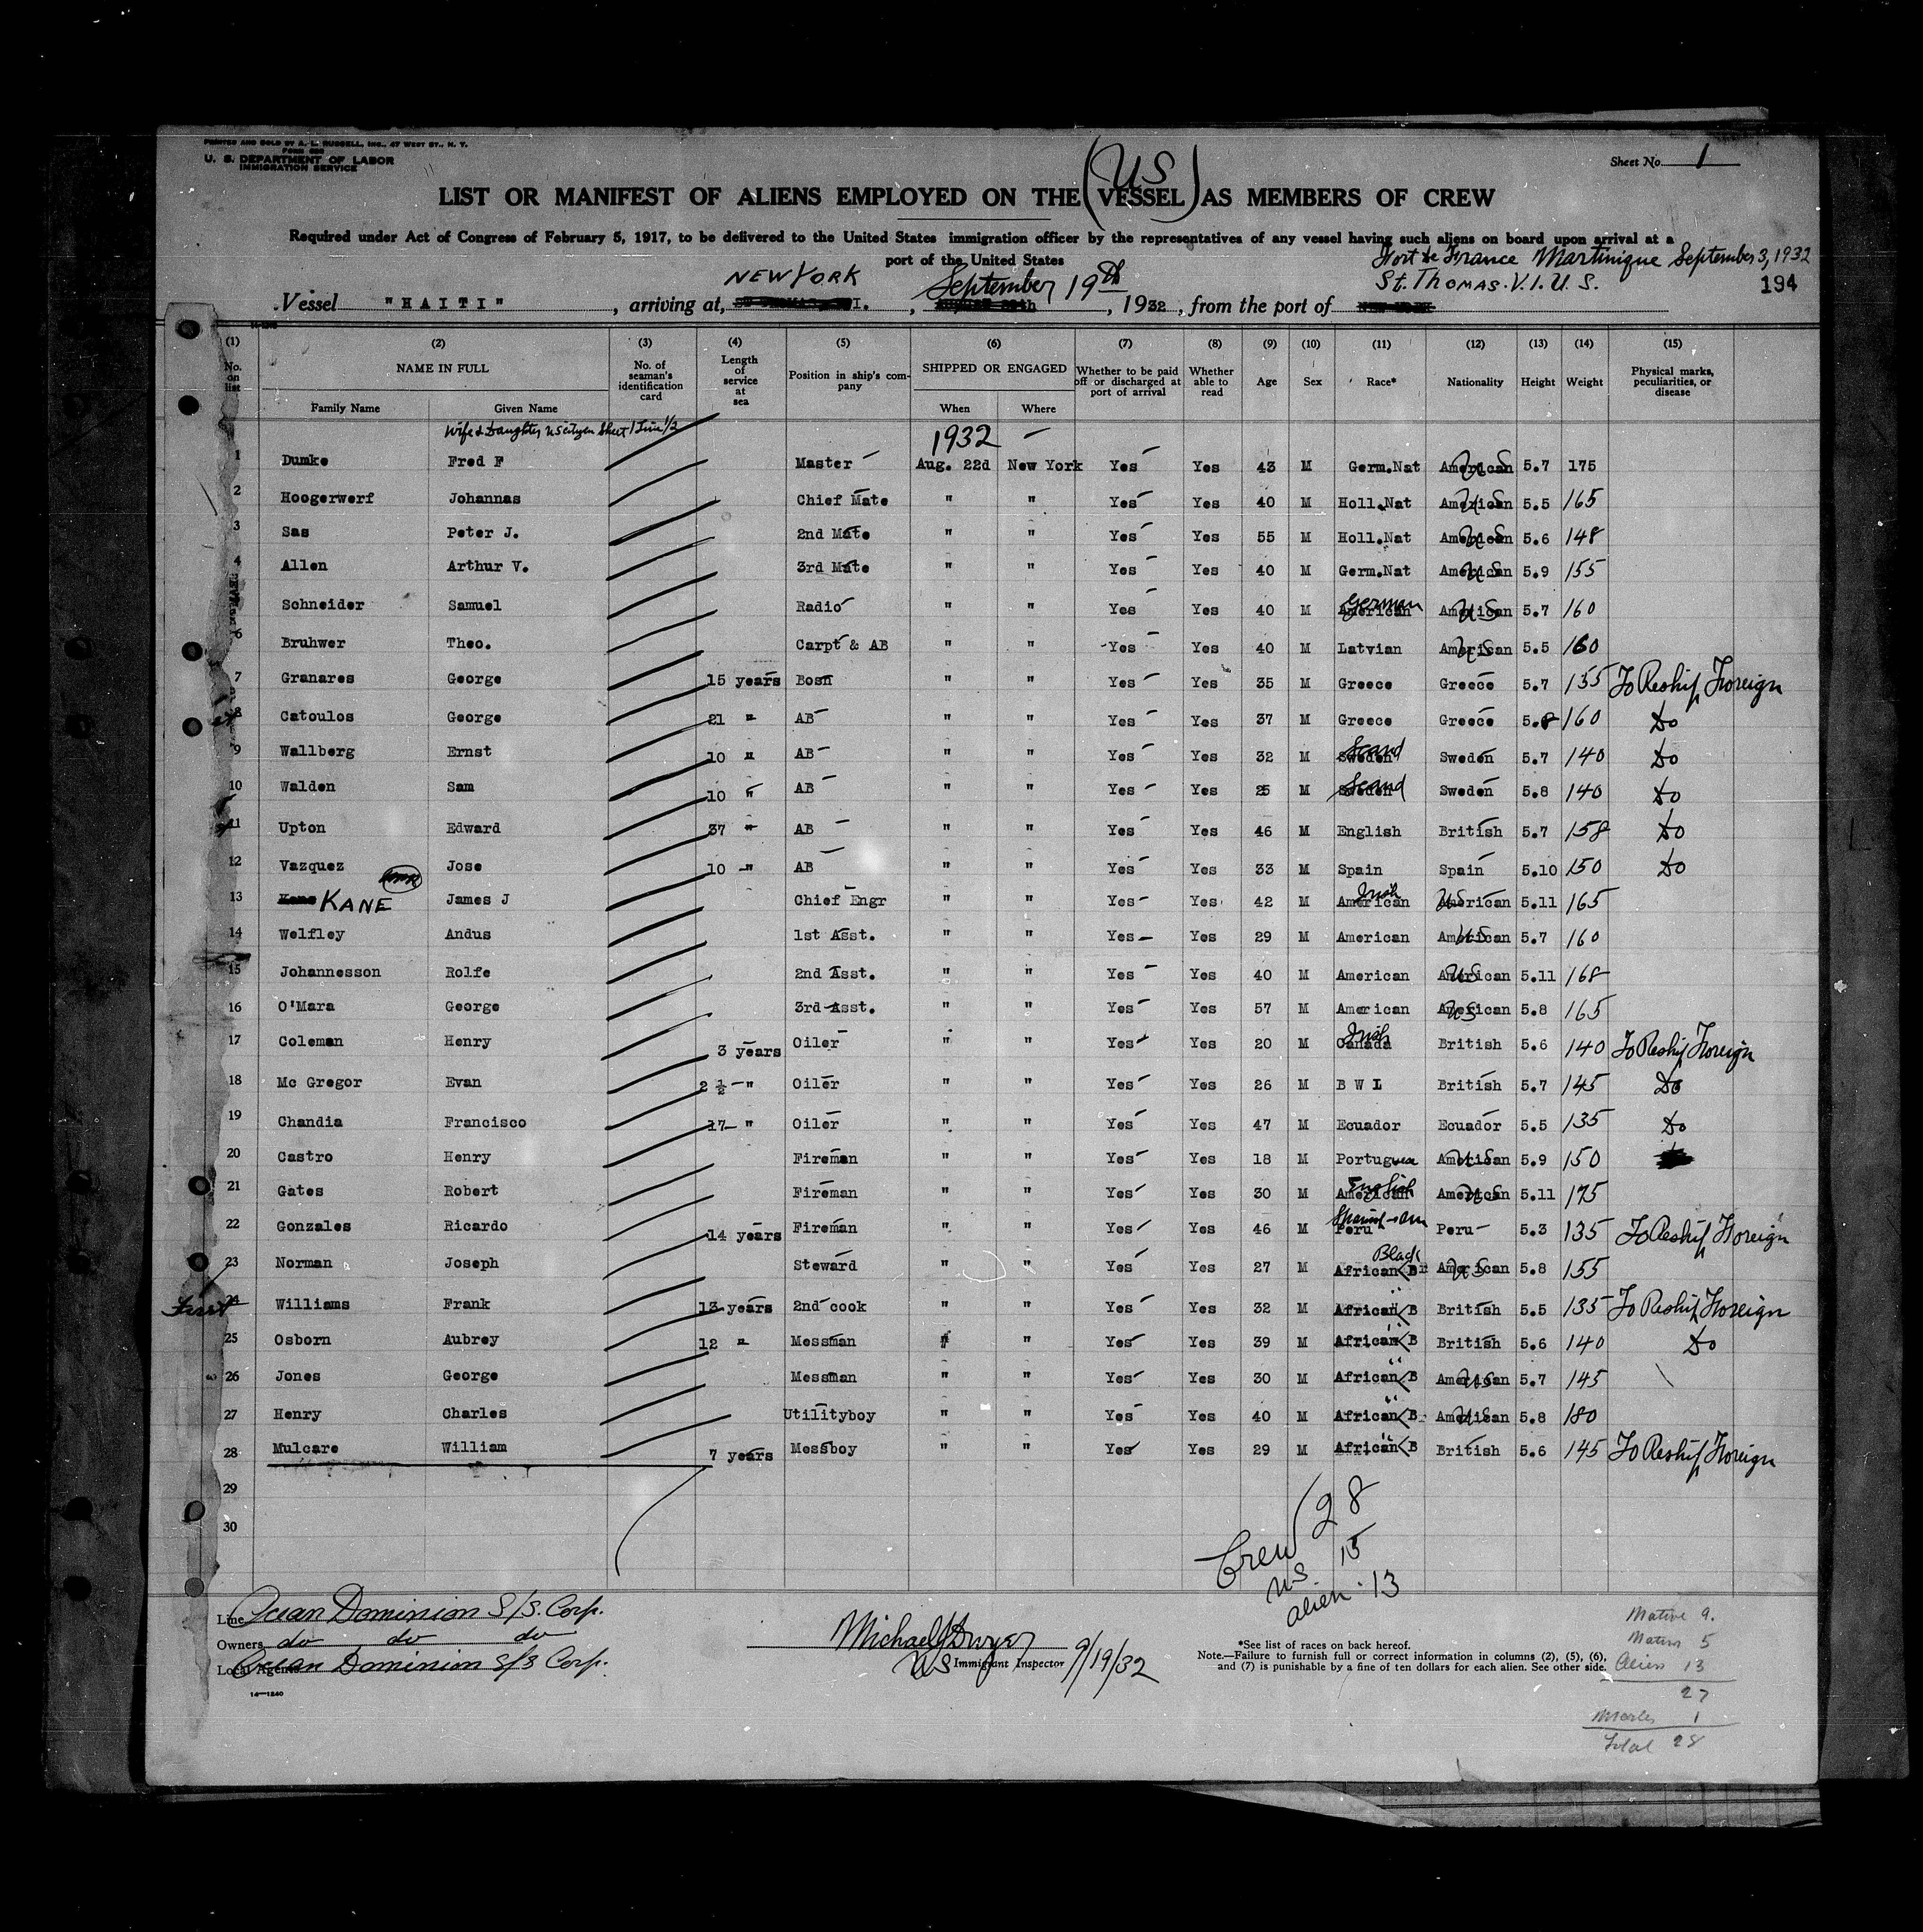 PRINTED AND SOLD BY A. L. RUSSELL, INC., 47 WEST ST., N. Y.
U. S. DEPARTMENT OF LABOR
IMMIGRATION SERVICE
Sheet No. 1
US
LIST OR MANIFEST OF ALIENS EMPLOYED ON THE (VESSEL) AS MEMBERS OF CREW
Required under Act of Congress of February 5, 1917, to be delivered to the United States immigration officer by the representatives of any vessel having such aliens on board upon arrival at a
port of the United States
Fort de France Martinique September 3, 1932
NEW YORK September 19th St. THOMAS. V.I. U.S. 194
Vessel "HAITI", arriving at, , 1932, from the port of
(1) (2) (3) (4) (5) (6) (7) (8) (9) (10) (11) (12) (13) (14) (15)
No. on list NAME IN FULL No. of seaman's identification card Length of service at sea Position in ship's company SHIPPED OR ENGAGED Whether to be paid off or discharged at port of arrival Whether able to read Age Sex Race* Nationality Height Weight Physical marks, peculiarities, or disease
Family Name Given Name When Where
Wife & Daughter US citizen Sheet 1 Line 1/2 1932
1 Dumke Fred F Master Aug. 22d New York Yes Yes 43 M Germ.Nat American US 5.7 175
2 Hoogerwerf Johannas Chief Mate " " Yes Yes 40 M Holl.Nat American US 5.5 165
3 Sas Peter J. 2nd Mate " " Yes Yes 55 M Holl.Nat American US 5.6 148
4 Allen Arthur V. 3rd Mate " " Yes Yes 40 M Germ.Nat American US 5.9 155
Schneider Samuel Radio " " Yes Yes 40 M American German American US 5.7 160
6 Bruhwer Theo. Carpt & AB " " Yes Yes 40 M Latvian American US 5.5 160
7 Granares George 15 years Bosn " " Yes Yes 35 M Greece Greece 5.7 155 To Reship Foreign
8 Catoulos George 21 " AB " " Yes Yes 37 M Greece Greece 5.8 160 Do
9 Wallberg Ernst 10 " AB " " Yes Yes 32 M Sweden Scand Sweden 5.7 140 Do
10 Walden Sam 10 " AB " " Yes Yes 25 M Sweden Scand Sweden 5.8 140 Do
11 Upton Edward 37 " AB " " Yes Yes 46 M English British 5.7 158 Do
12 Vazquez Jose 10 " AB " " Yes Yes 33 M Spain Spain 5.10 150 Do
13 KANE James J Chief Engr " " Yes Yes 42 M American Irish American US 5.11 165
14 Welfley Andus 1st Asst. " " Yes Yes 29 M American American US 5.7 160
15 Johannesson Rolfe 2nd Asst. " " Yes Yes 40 M American American US 5.11 168
16 O'Mara George 3rd Asst. " " Yes Yes 57 M American American US 5.8 165
17 Coleman Henry 3 years Oiler " " Yes Yes 20 M Canada Irish British 5.6 140 To Reship Foreign
18 Mc Gregor Evan 2 ½ " Oiler " " Yes Yes 26 M B W I British 5.7 145 Do
19 Chandia Francisco 17 " Oiler " " Yes Yes 47 M Ecuador Ecuador 5.5 135 Do
20 Castro Henry Fireman " " Yes Yes 18 M Portuguese American US 5.9 150
21 Gates Robert Fireman " " Yes Yes 30 M American English American US 5.11 175
22 Gonzales Ricardo 14 years Fireman " " Yes Yes 46 M Peru Spanish-Am Peru 5.3 135 To Reship Foreign
23 Norman Joseph Steward " " Yes Yes 27 M African Black American US 5.8 155
24 Williams Frank 13 years 2nd cook " " Yes Yes 32 M African (B " British 5.5 135 To Reship Foreign
25 Osborn Aubrey 12 " Messman " " Yes Yes 39 M African (B " British 5.6 140 Do
26 Jones George Messman " " Yes Yes 30 M African (B " American US 5.7 145
27 Henry Charles Utilityboy " " Yes Yes 40 M African (B " American US 5.8 180
28 Mulcare William 7 years Messboy " " Yes Yes 29 M African (B " British 5.6 145 To Reship Foreign
29
30
Crew 28
US 15
alien 13
Line Ocean Dominion S/S. Corp.
Owners do do do
Local Agents Ocean Dominion S/S Corp.
Michael J Dwyer
US Immigrant Inspector 9/19/32
*See list of races on back hereof.
Note.—Failure to furnish full or correct information in columns (2), (5), (6),
and (7) is punishable by a fine of ten dollars for each alien. See other side.
Native 9.
5
Aliens 13
27
1
Total 28
14—1240